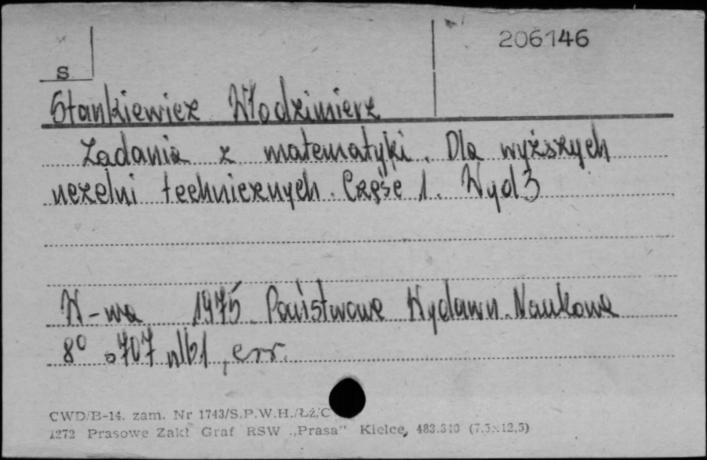 206146
S
Stankiewicz Włodzimierz
Zadania z matematyki. Dla wyższych
uczelni technicznych. Część 1. Wyd 3
W-wa 1975 Państwowe Wydawn. Naukowe
8° s 707 nlb1, err.
CWD/B-14. zam. Nr 1743/S.P.W.H./Łż/C
1272 Prasowe Zakł Graf RSW „Prasa” Kielce, 483.340 (7,5×12,5)